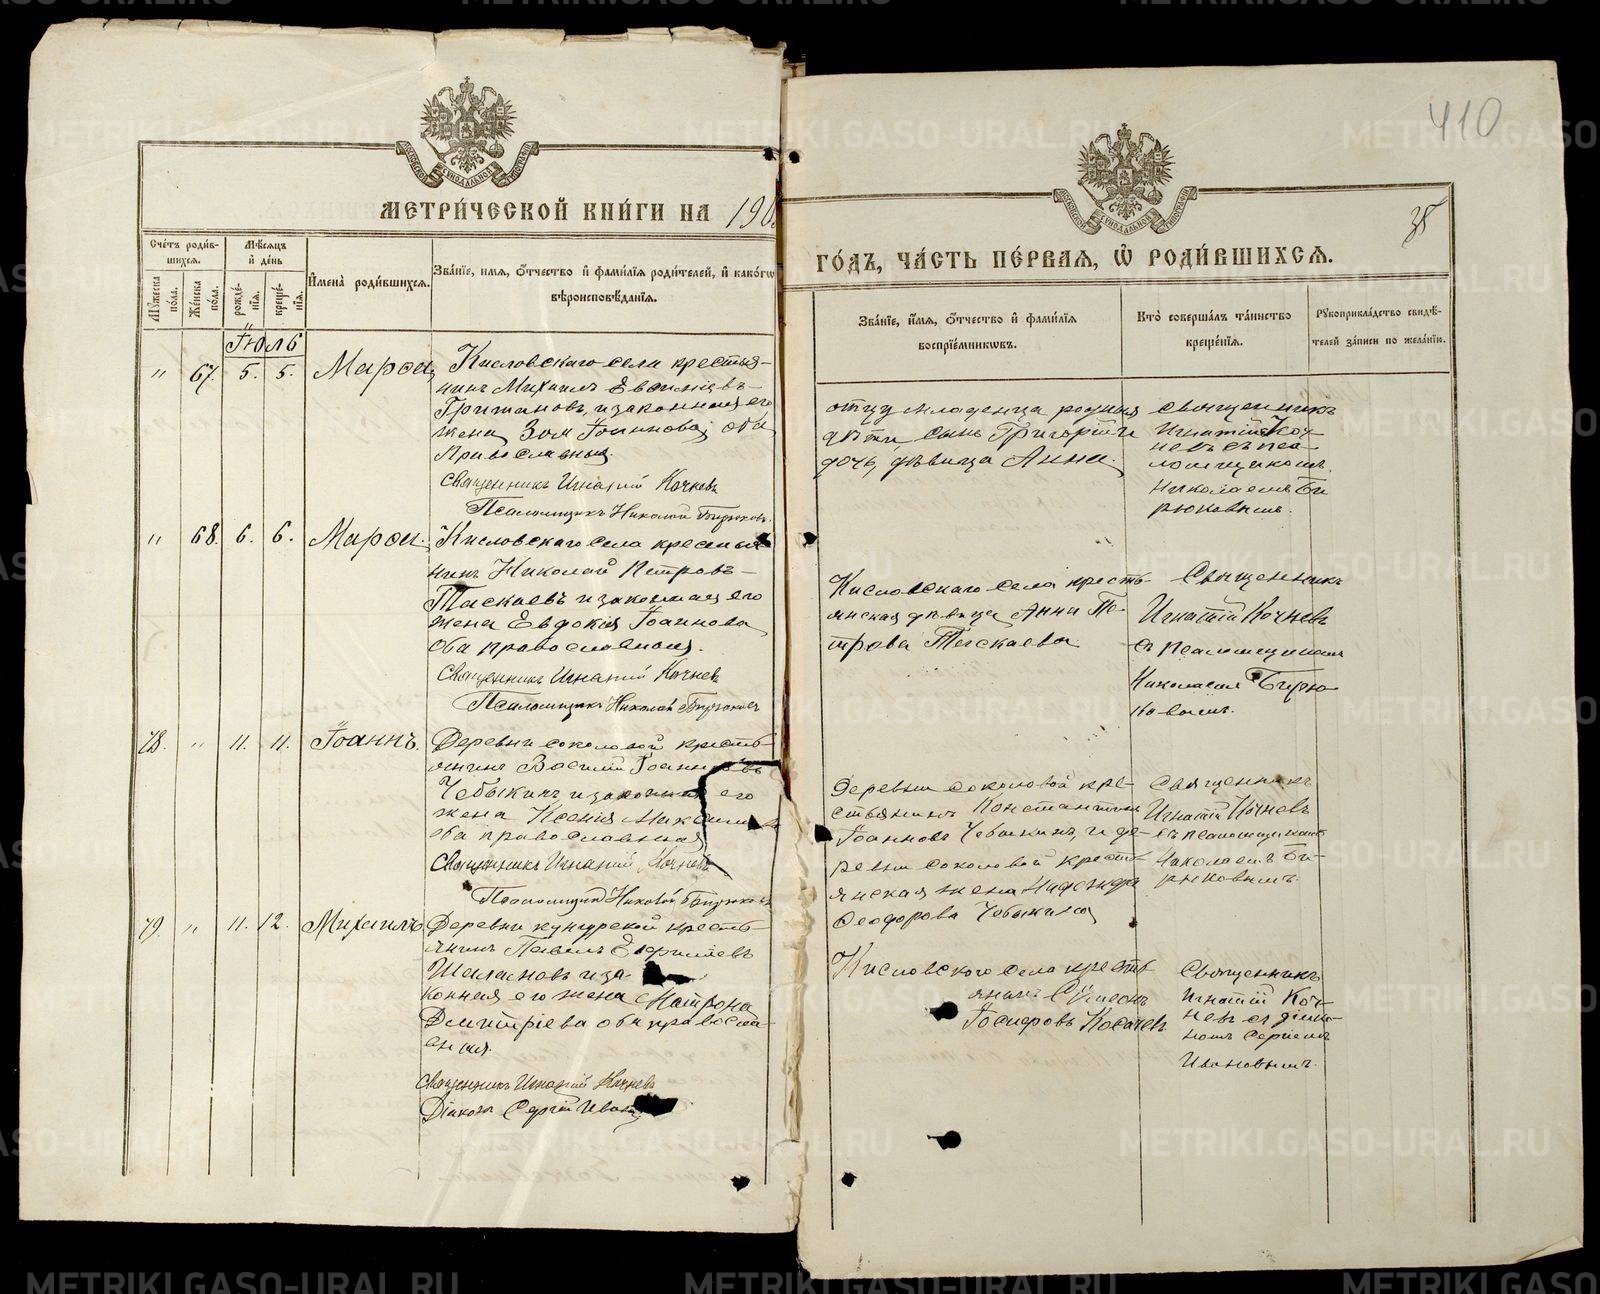 410
38
МЕТРИ́ЧЕСКОЙ КНИ́ГИ НА 190
ГО́ДЪ, ЧА́СТЬ ПЕ́РВАЯ, Ѡ РОДИ́ВШИХСѦ.
Сче́тъ роди́в-
шихся.
Мꙋжеска по́ла.
Же́нска по́ла.
Мѣ́сяцъ
и҆ де́нь
рожде́-
нїѧ.
креще́-
нїѧ.
И҆мена̀ роди́вшихсѧ.
Зва́нїе, и҆мѧ, ѻ҆́тчество и҆ фами́лїѧ роди́телей, и҆ како́гѡ
вѣроисповѣ́данїѧ.
Зва́нїе, и҆́мѧ, ѻ҆́тчество и҆ фами́лїѧ
воспрїе́мникѡвъ.
Кто̀ соверша́лъ та́инство
креще́нїѧ.
Рꙋкоприкла́дство свидѣ́-
телей за́писи по жела́нїю.
Іюль
" 67. 5. 5. Марѳа
Кисловскаго села крестья-
нинъ Михаилъ
и законная его
жена Іоаннова, оба
Православныя.
Священникъ Игнатій Кочневъ
Псаломщикъ Николай Бирюковъ.
отцу младенца родныя
дѣти, сынъ Григорій и
дочь, дѣвица Анна.
священникъ
Игнатій Коч-
невъ съ пса-
ломщикомъ
Николаемъ Би-
рюковымъ.
" 68. 6. 6. Марѳа.
Кисловскаго села крестья-
нинъ Николай Петровъ
Таскаевъ и законная его
жена Евдокія Іоаннова,
оба православныя.
Священникъ Игнатій Кочнев
Псаломщикъ Николай Бирюков
Кисловскаго села кресть-
янская дѣвица Анна Пе-
трова Таскаева.
Священникъ
Игнатій Кочневъ
съ псаломщикомъ
Николаемъ Бирю-
ковымъ.
78. " 11. 11. Іоаннъ.
Деревни Соколовой кресть-
янинъ Василій Іоанновъ
Чебыкинъ и законная его
жена Ксенія
оба православныя
Священникъ Игнатій Кочневъ
Псаломщикъ Николай Бирюковъ
Деревни Соколовой кре-
стьянинъ Константинъ
Іоанновъ Чебыкинъ, и де-
ревни Соколовой кресть-
янская жена Надежда
Ѳеодорова Чебыкина
Священникъ
Игнатій Кочневъ
съ псаломщикомъ
Николаемъ Би-
рюковымъ.
79. " 11. 12. Михаилъ
Деревни кресть-
янинъ Павелъ
и за-
конная его жена Матрона
Димитріева оба правосла-
вныя.
Священникъ Игнатій Кочневъ
Діаконъ Сергій
Кисловского села кресть-
янинъ Сѵмеонъ
Іосифовъ Косачевъ
Священникъ
Игнатій Коч-
невъ съ діако-
номъ Сергіемъ
Ивановымъ.
METRIKI.GASO-URAL.RU